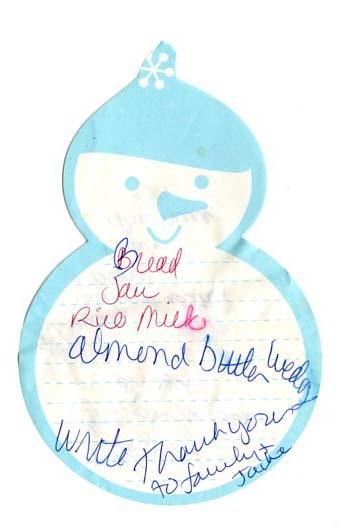 Bread
Jam
Rice Milk
Almond Butter
Write Thankyou
to family +
Jackie